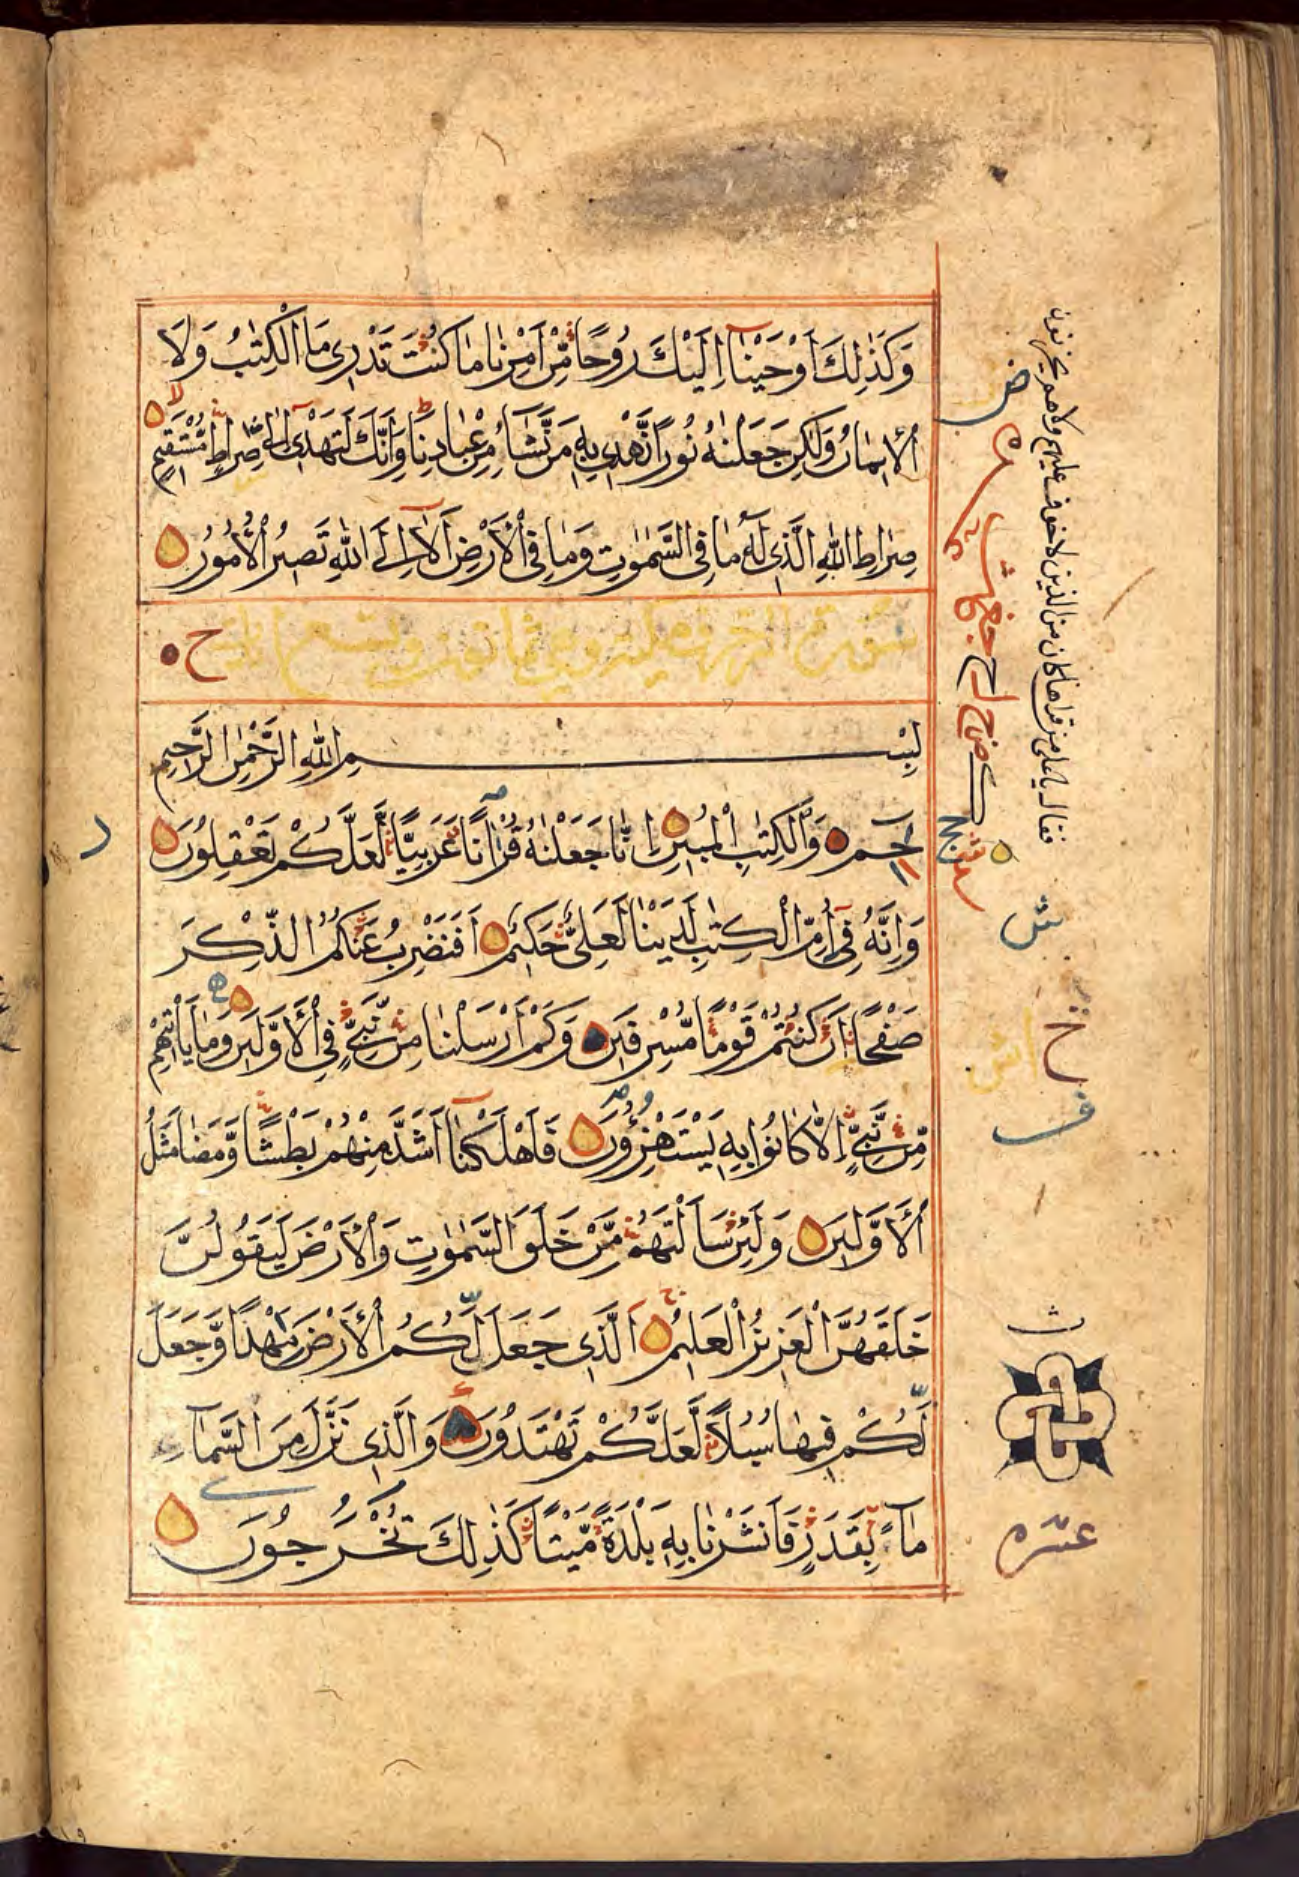 وَكَذٰلِكَ اَوْحَيْنَآ اِلَيْكَ رُوحًا مِّنْ اَمْرِنَا مَا كُنْتَ تَدْرِى مَا الْكِتٰبُ وَلَا
الْاِيمَانُ وَلٰكِنْ جَعَلْنٰهُ نُورًا نَّهْدِى بِهٖ مَنْ نَّشَآءُ مِنْ عِبَادِنَا وَاِنَّكَ لَتَهْدِىٓ اِلٰى صِرَاطٍ مُّسْتَقِيمٍ
صِرَاطِ اللّٰهِ الَّذِى لَهٗ مَا فِى السَّمٰوٰتِ وَمَا فِى الْاَرْضِ اَلَآ اِلَى اللّٰهِ تَصِيرُ الْاُمُورُ
سورة الزخرف مكية وهي ثمانون وتسع ايات
بِسْمِ اللّٰهِ الرَّحْمٰنِ الرَّحِيمِ
حٰمٓ وَالْكِتٰبِ الْمُبِينِ اِنَّا جَعَلْنٰهُ قُرْاٰنًا عَرَبِيًّا لَّعَلَّكُمْ تَعْقِلُونَ
وَاِنَّهٗ فِىٓ اُمِّ الْكِتٰبِ لَدَيْنَا لَعَلِىٌّ حَكِيمٌ اَفَنَضْرِبُ عَنْكُمُ الذِّكْرَ
صَفْحًا اَنْ كُنْتُمْ قَوْمًا مُّسْرِفِينَ وَكَمْ اَرْسَلْنَا مِنْ نَّبِىٍّ فِى الْاَوَّلِينَ وَمَا يَاْتِيهِمْ
مِّنْ نَّبِىٍّ اِلَّا كَانُوا بِهٖ يَسْتَهْزِؤُنَ فَاَهْلَكْنَآ اَشَدَّ مِنْهُمْ بَطْشًا وَّمَضٰى مَثَلُ
الْاَوَّلِينَ وَلَئِنْ سَاَلْتَهُمْ مَّنْ خَلَقَ السَّمٰوٰتِ وَالْاَرْضَ لَيَقُولُنَّ
خَلَقَهُنَّ الْعَزِيزُ الْعَلِيمُ الَّذِى جَعَلَ لَكُمُ الْاَرْضَ مَهْدًا وَّجَعَلَ
لَكُمْ فِيهَا سُبُلًا لَّعَلَّكُمْ تَهْتَدُونَ وَالَّذِى نَزَّلَ مِنَ السَّمَآءِ
مَآءً بِقَدَرٍ فَاَنْشَرْنَا بِهٖ بَلْدَةً مَّيْتًا كَذٰلِكَ تُخْرَجُونَ
عشره